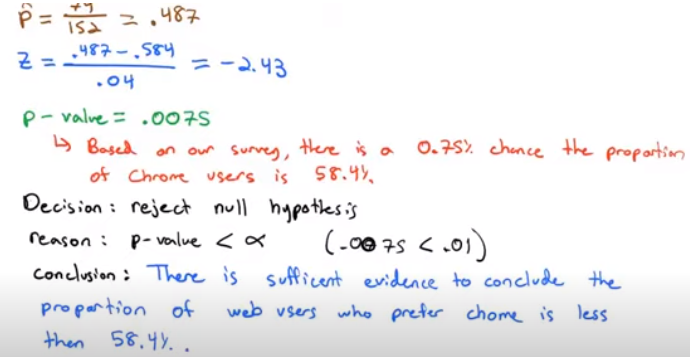 p̂ = 74/152 = .487
z = .487 - .584 / .04 = -2.43
p-value = .0075
↳ Based on our survey, there is a 0.75% chance the proportion
of Chrome users is 58.4%.
Decision: reject null hypothesis
reason: p-value < α (.0075 < .01)
conclusion: There is sufficent evidence to conclude the
proportion of web users who prefer chome is less
then 58.4%.